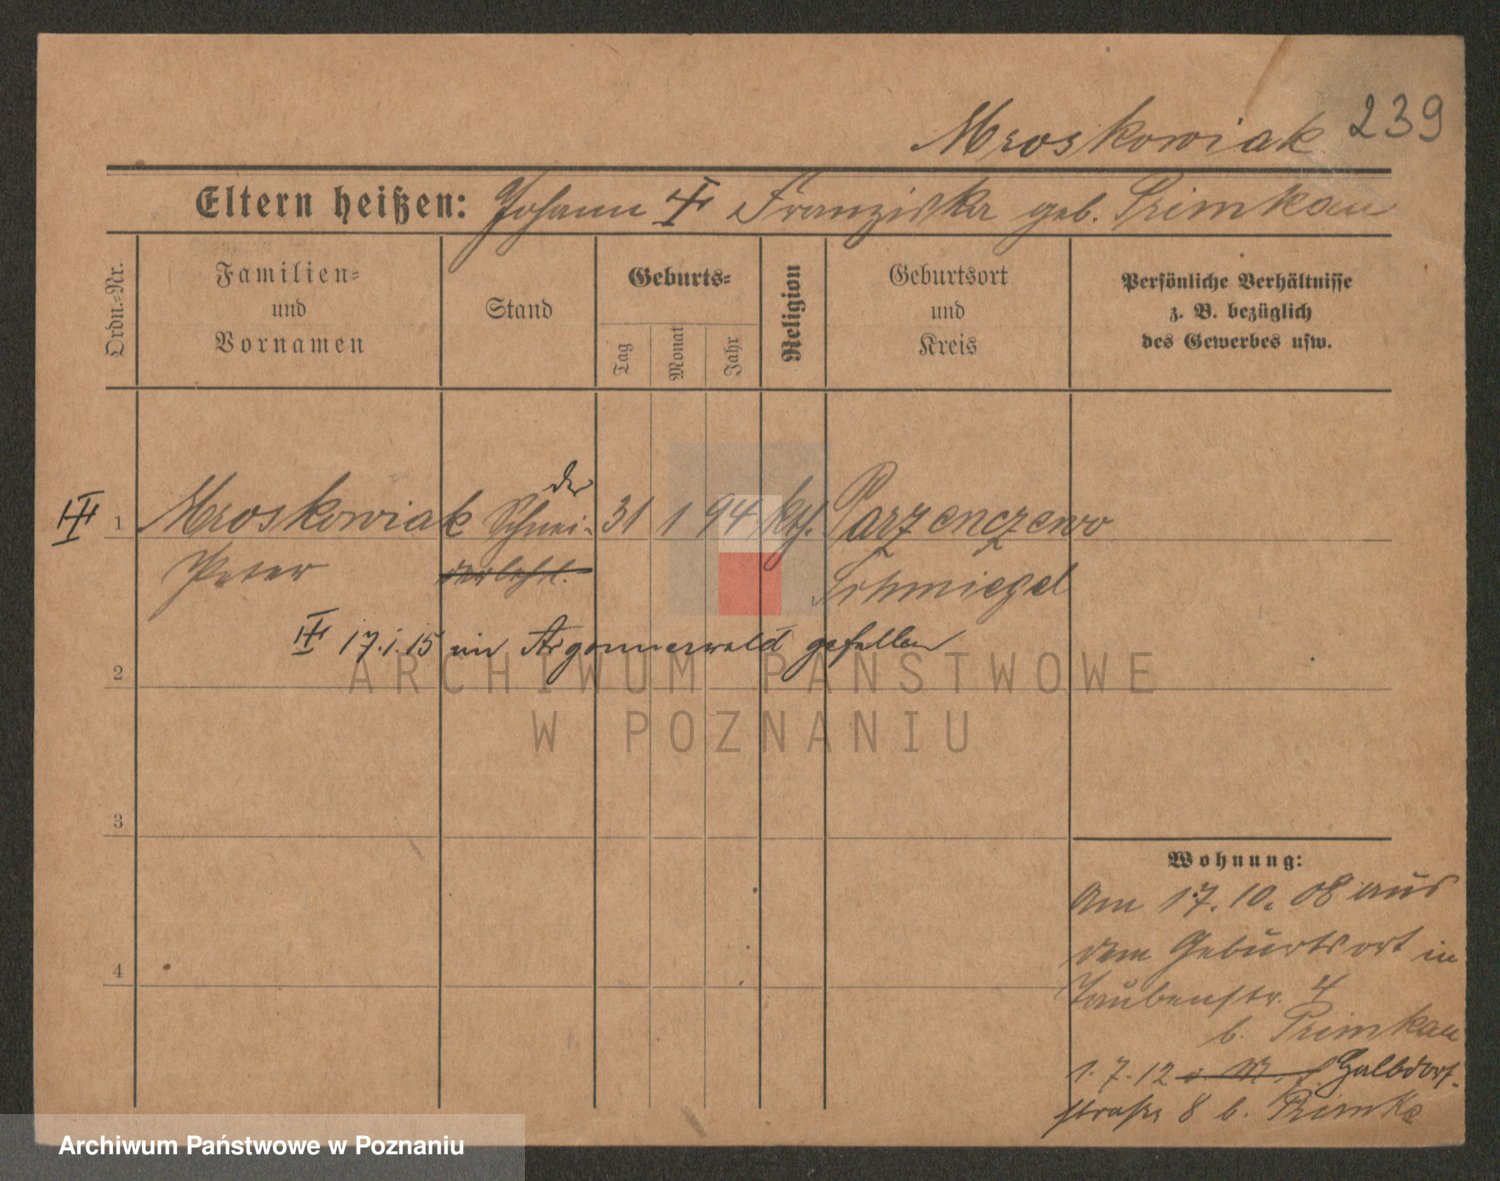 Mroskowiak 239
Eltern heißen: Johann Franziska geb. Primkau
Ordn.-Nr.
Familien-
und
Vornamen
Stand
Geburts-
Tag
Monat
Jahr
Religion
Geburtsort
und
Kreis
Persönliche Verhältnisse
z. B. bezüglich
des Gewerbes usw.
der
1 Mroskowiak Schnei- 31 1 94 kth. Parzenczewo
Peter derlehrl. Schmiegel
17.1.15 im Argonnerwald gefallen
2
3
4
Wohnung:
Am 17. 10. 08 aus
dem Geburtsort in
Taubenstr. 4
b. Primkau
1. 7. 12 Galbdorf-
straße 8 b. Primke
ARCHIWUM PAŃSTWOWE
W POZNANIU
Archiwum Państwowe w Poznaniu